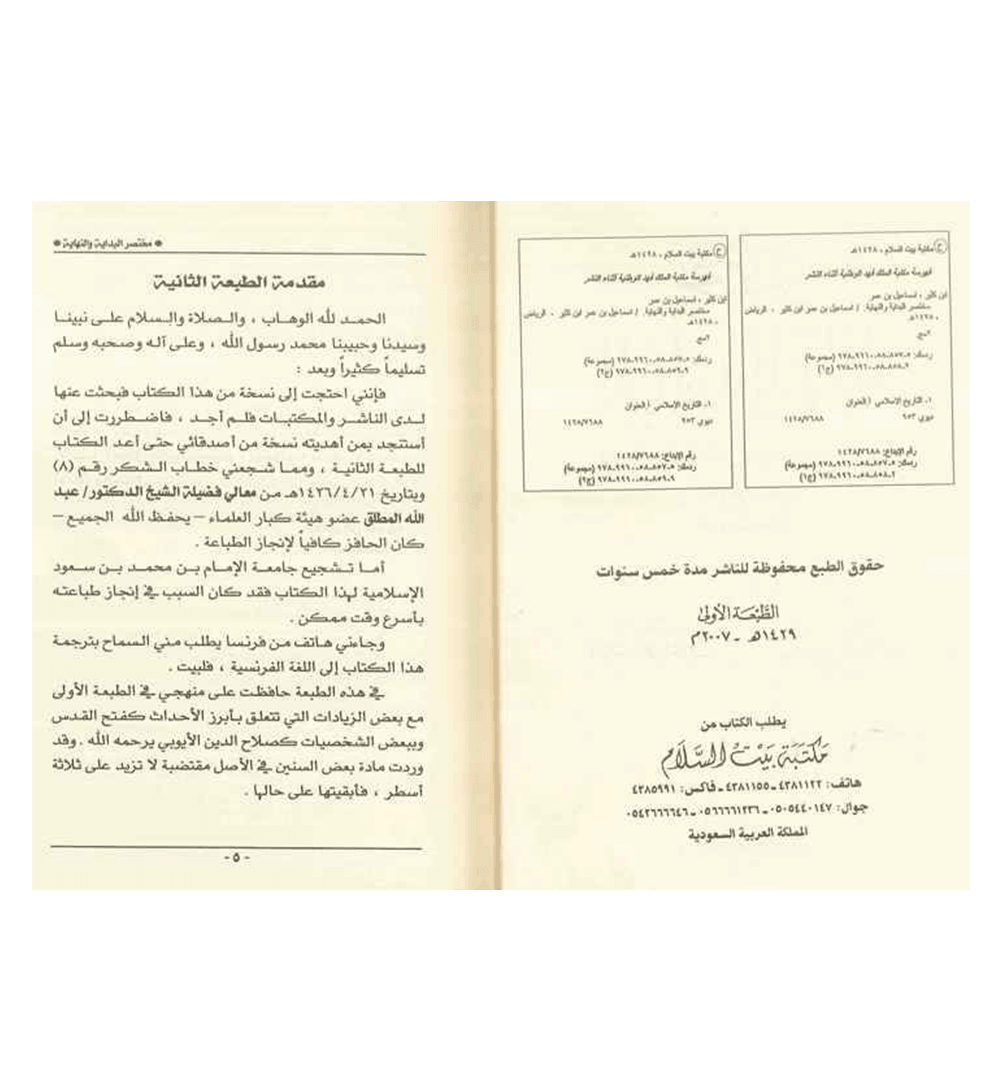 ح مكتبة بيت السلام ، ١٤٢٨هـ
فهرسة مكتبة الملك فهد الوطنية أثناء النشر
ابن كثير ، اسماعيل بن عمر
مختصر البداية والنهاية. / اسماعيل بن عمر ابن كثير - الرياض
، ١٤٢٨هـ
٢مج.
ردمك: ٥-٨٥٧-٥٨-٩٩٦٠-٩٧٨ (مجموعة)
٢-٨٥٨-٥٨-٩٩٦٠-٩٧٨ (ج١)
١- التاريخ الاسلامي أ.العنوان
ديوي ٩٥٣ ١٤٢٨/٧٦٨٨
رقم الإيداع: ١٤٢٨/٧٦٨٨
ردمك: ٥-٨٥٧-٥٨-٩٩٦٠-٩٧٨ (مجموعة)
٢-٨٥٨-٥٨-٩٩٦٠-٩٧٨ (ج١)
ح مكتبة بيت السلام ، ١٤٢٨هـ
فهرسة مكتبة الملك فهد الوطنية أثناء النشر
ابن كثير ، اسماعيل بن عمر
مختصر البداية والنهاية. / اسماعيل بن عمر ابن كثير - الرياض
، ١٤٢٨هـ
٢مج.
ردمك: ٥-٨٥٧-٥٨-٩٩٦٠-٩٧٨ (مجموعة)
٩-٨٥٩-٥٨-٩٩٦٠-٩٧٨ (ج٢)
١- التاريخ الاسلامي أ.العنوان
ديوي ٩٥٣ ١٤٢٨/٧٦٨٨
رقم الإيداع: ١٤٢٨/٧٦٨٨
ردمك: ٥-٨٥٧-٥٨-٩٩٦٠-٩٧٨ (مجموعة)
٩-٨٥٩-٥٨-٩٩٦٠-٩٧٨ (ج٢)
حقوق الطبع محفوظة للناشر مدة خمس سنوات
الطَّبْعَة الأولى
١٤٢٩هـ - ٢٠٠٧م
يطلب الكتاب من
مكتبة بيت السلام
هاتف: ٤٣٨١١٢٢ - ٤٣٨١١٥٥ - فاكس: ٤٣٨٥٩٩١
جوال: ٠٥٠٥٤٤٠١٤٧ - ٠٥٦٦٦٦١٢٣٦ - ٠٥٤٢٦٦٦٦٤٦
المملكة العربية السعودية
* مختصر البداية والنهاية *
مقدمة الطبعة الثانية
الحمد لله الوهاب ، والصلاة والسلام على نبينا
وسيدنا وحبيبنا محمد رسول الله ، وعلى آله وصحبه وسلم
تسليماً كثيراً وبعد :
فإنني احتجت إلى نسخة من هذا الكتاب فبحثت عنها
لدى الناشر والمكتبات فلم أجد ، فاضطررت إلى أن
أستنجد بمن أهديته نسخة من أصدقائي حتى أعد الكتاب
للطبعة الثانية ، ومما شجعني خطاب الشكر رقم (٨)
وبتاريخ ١٤٢٦/٤/٢١هـ من معالي فضيلة الشيخ الدكتور/ عبد
الله المطلق عضو هيئة كبار العلماء – يحفظ الله الجميع –
كان الحافز كافياً لإنجاز الطباعة .
أما تشجيع جامعة الإمام بن محمد بن سعود
الإسلامية لهذا الكتاب فقد كان السبب في إنجاز طباعته
بأسرع وقت ممكن .
وجاءني هاتف من فرنسا يطلب مني السماح بترجمة
هذا الكتاب إلى اللغة الفرنسية ، فلبيت .
في هذه الطبعة حافظت على منهجي في الطبعة الأولى
مع بعض الزيادات التي تتعلق بأبرز الأحداث كفتح القدس
وببعض الشخصيات كصلاح الدين الأيوبي يرحمه الله . وقد
وردت مادة بعض السنين في الأصل مقتضبة لا تزيد على ثلاثة
أسطر ، فأبقيتها على حالها .
- ٥ -